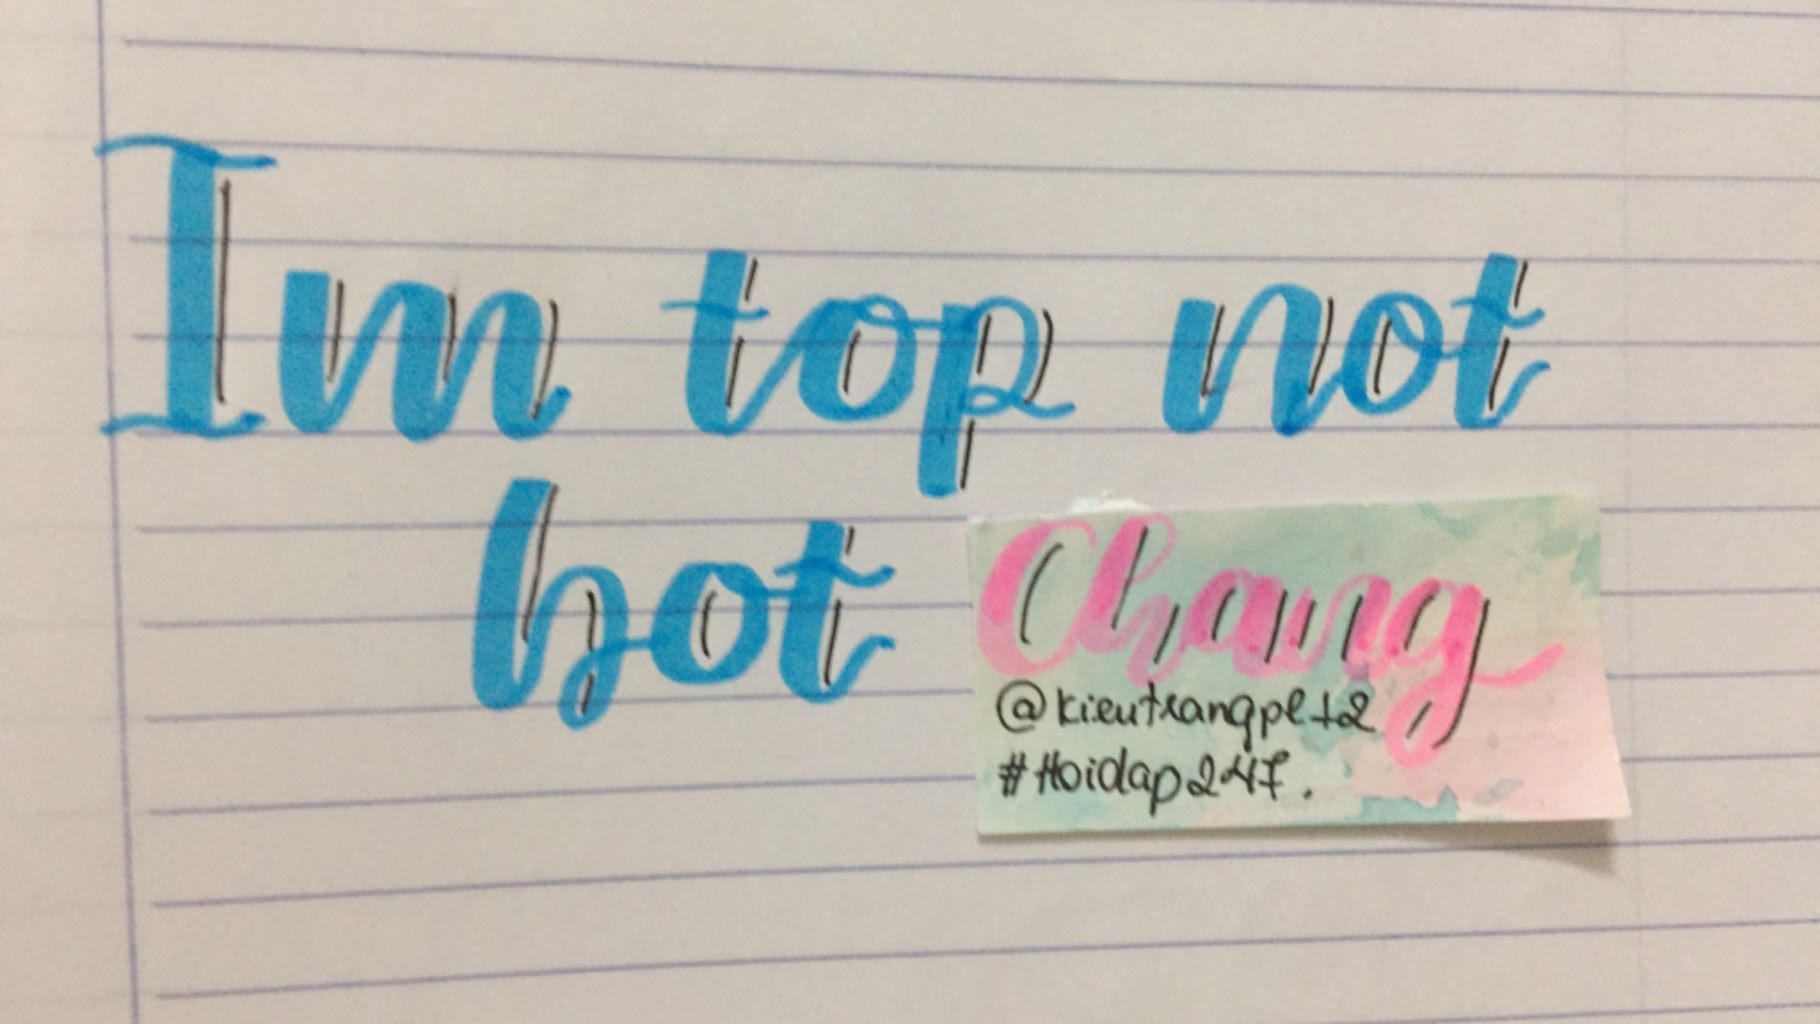 Im top not
bot
Chang
@kieutrangplt2
#Hoidap247.